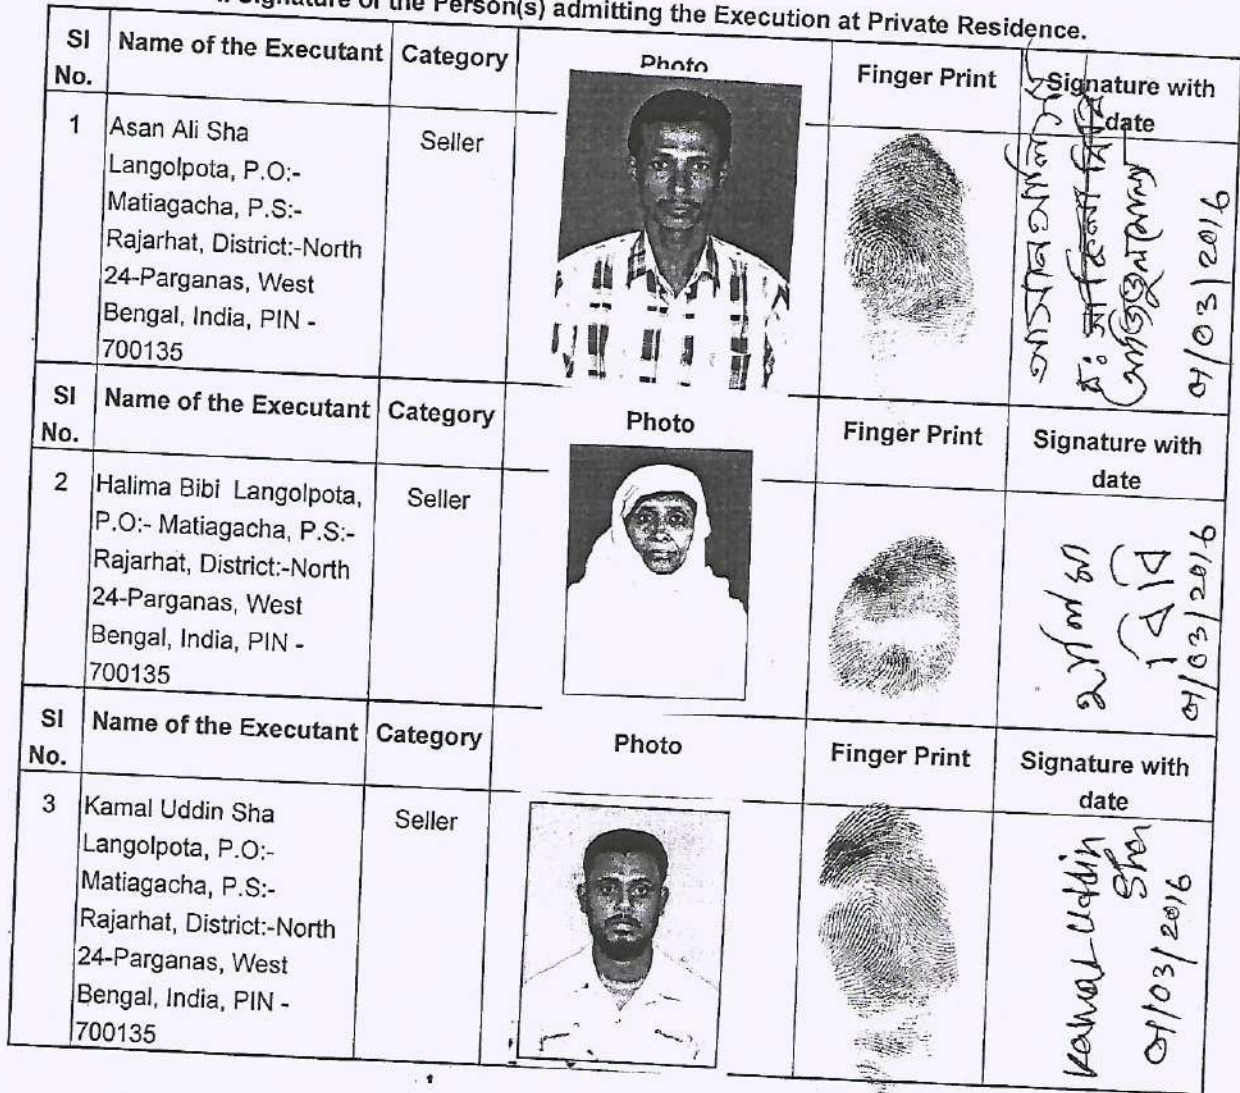 Signature of the Person(s) admitting the Execution at Private Residence.
Sl No. Name of the Executant Category Photo Finger Print Signature with date
1
Asan Ali Sha
Langolpota, P.O:-
Matiagacha, P.S:-
Rajarhat, District:-North
24-Parganas, West
Bengal, India, PIN -
700135
Seller
01/03/2016
Sl No. Name of the Executant Category Photo Finger Print Signature with date
2
Halima Bibi Langolpota,
P.O:- Matiagacha, P.S:-
Rajarhat, District:-North
24-Parganas, West
Bengal, India, PIN -
700135
Seller
হালিমা
বিবি
01/03/2016
Sl No. Name of the Executant Category Photo Finger Print Signature with date
3
Kamal Uddin Sha
Langolpota, P.O:-
Matiagacha, P.S:-
Rajarhat, District:-North
24-Parganas, West
Bengal, India, PIN -
700135
Seller
Kamal Uddin
Sha
01/03/2016